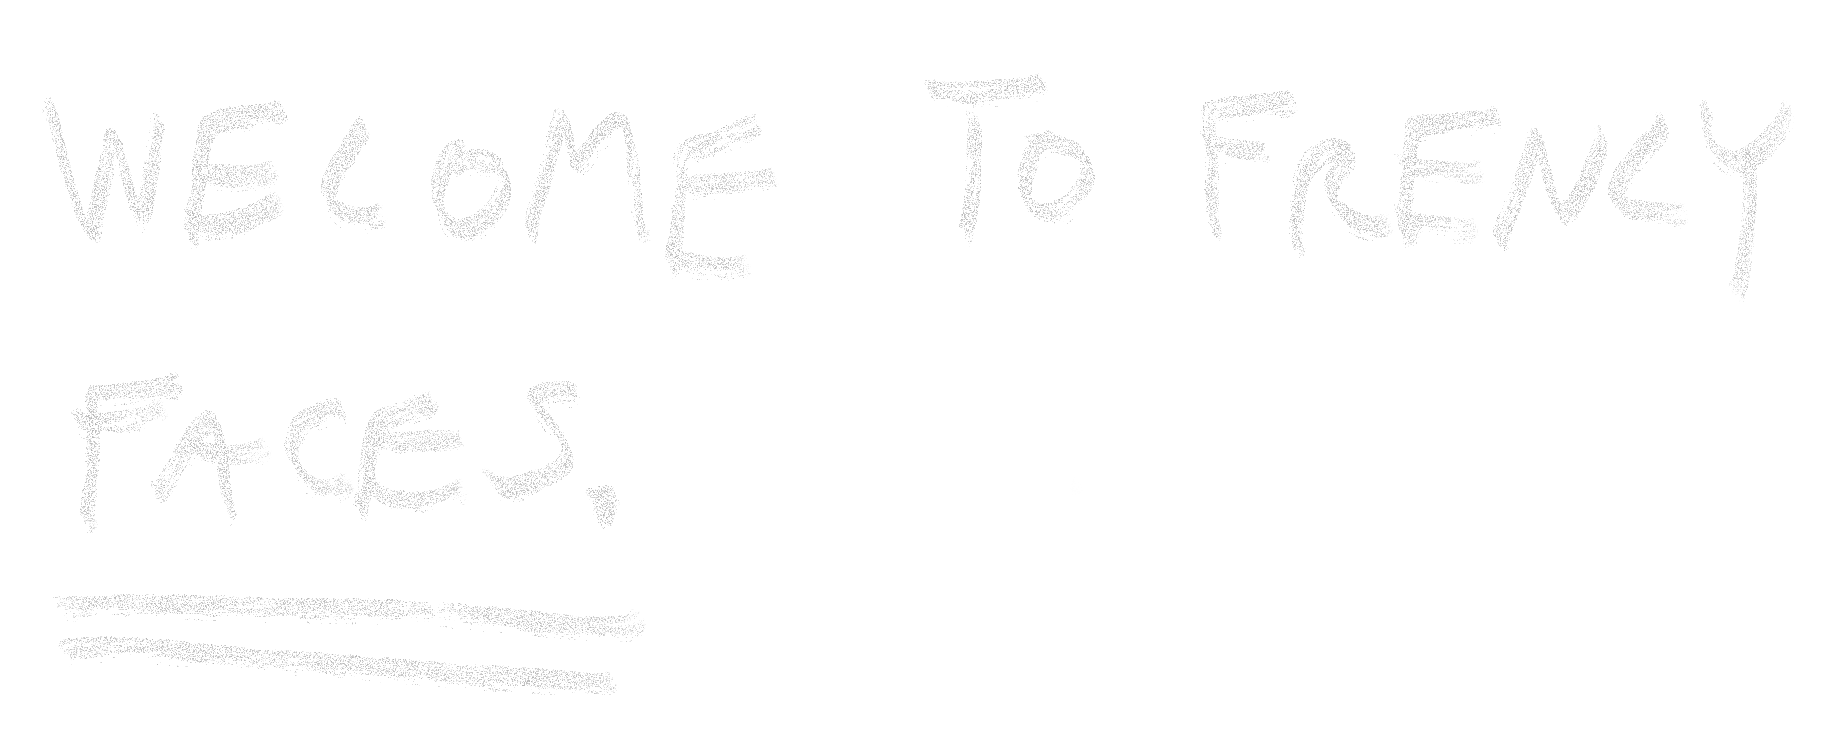 WELOME TO FRENCY
FACES.